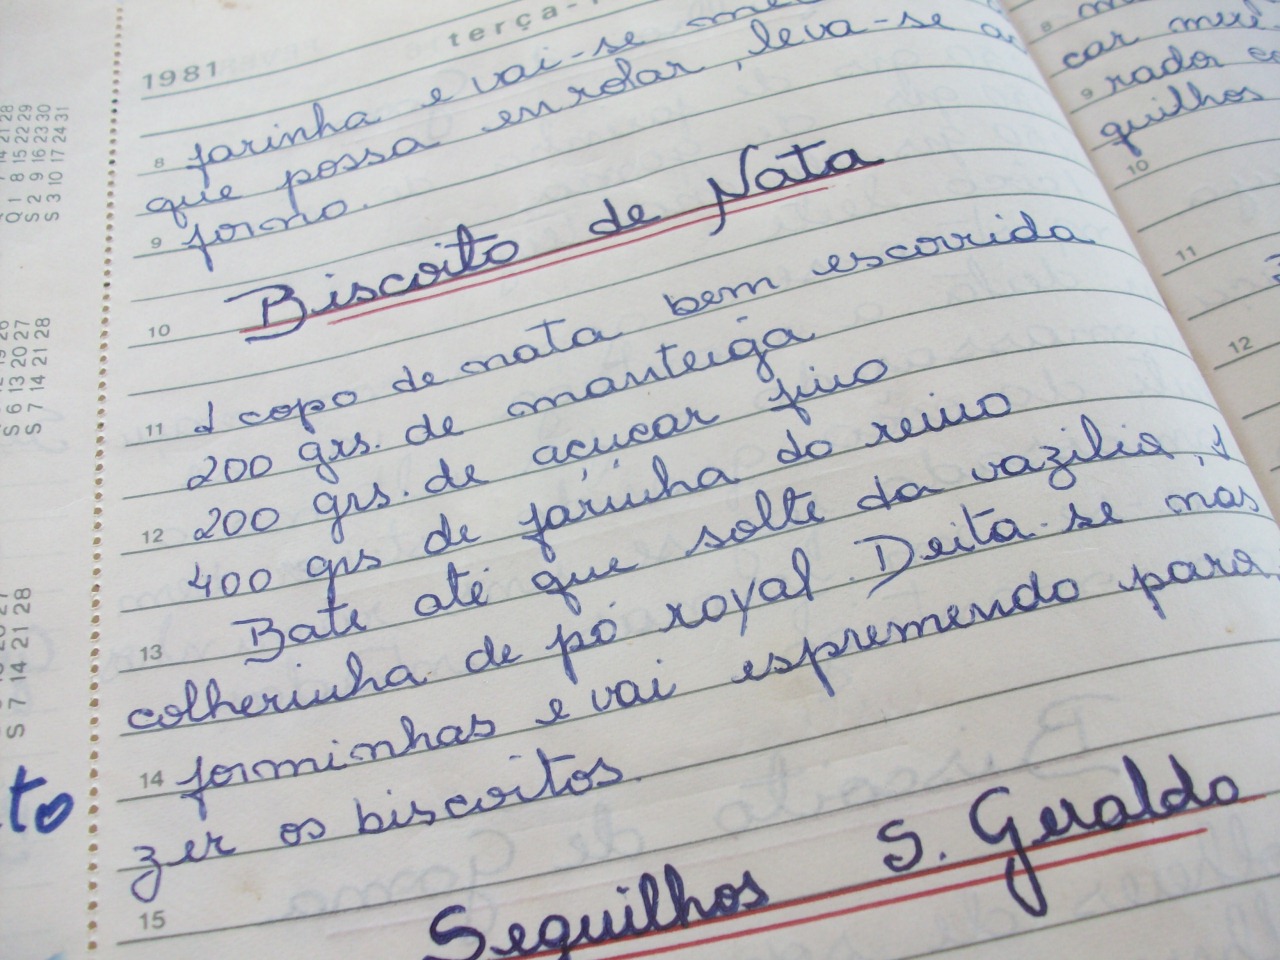 1981 terça-
farinha e vai-se
8 que possa enrolar, leva-se ao
9 forno.
Biscoito de Nata
10
1 copo de nata bem escorrida
11 200 grs. de manteiga
200 grs. de açucar fino
12 400 grs de farinha do reino
Bate até que solte da vazilia, 1
13 colherinha de pó royal. Deita-se nas
forminhas e vai espremendo para fa
14 zer os biscoitos.
15 Sequilhos S. Geraldo
8
car mui
9 rador
quilhos
10
11
12
14 21 28
Q 1 8 15 22 29
S 2 9 16 23 30
S 3 10 17 24 31
S 6 13 20 27
S 7 14 21 28
S 7 14 21 28
to